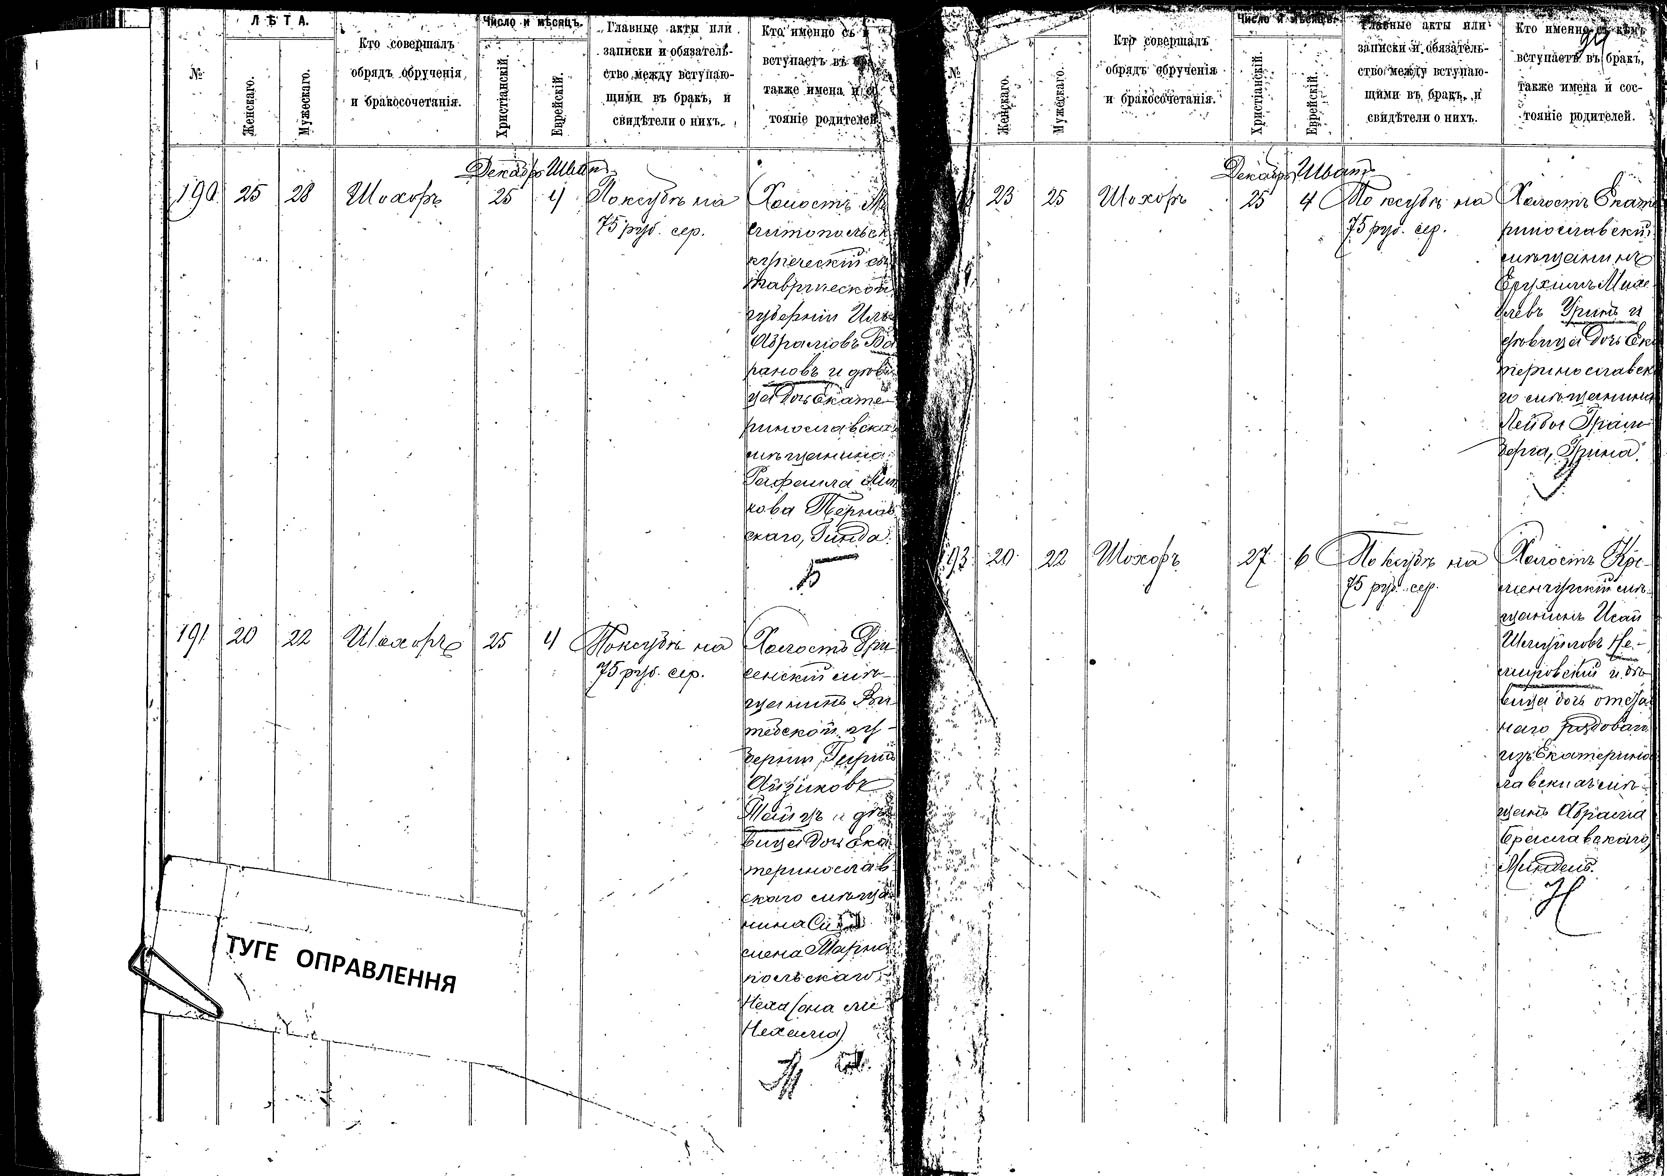 №
ЛѢТА.
Женскаго.
Мужескаго.
Кто совершалъ
обрядъ обрученія
и бракосочетанія.
Число и мѣсяцъ.
Христіанскій.
Еврейскій.
Главные акты или
записки и обязатель-
ство между вступаю-
щими въ бракъ, и
свидѣтели о нихъ.
Кто именно съ
вступаетъ въ
также имена и
тояніе родителей
Декабрь Шватъ
190 25 28 Шохоръ 25 4
По ксубѣ на
75 руб. сер.
Холостъ
литопольск
купеческій
таврической
губерніи
Абрамовъ Ба
рановъ и дѣви
ца дочь Екате-
ринославска
мѣщанина
Рафаила
кова Тернов
скаго, Гинда.
Б
191 20 22 Шохоръ 25 4
По ксубѣ на
75 руб. сер.
Холостъ Дри
сенскій мѣ-
щанинъ Ви-
тебской гу-
берніи
Айзиковъ
Тайцъ и дѣ
вица дочь Ека
теринослав
скаго мѣща
нина Си
мена Тарно
польскаго,
Неха (она ли
Нехама)
Т
ТУГЕ ОПРАВЛЕННЯ
№
Женскаго.
Мужескаго.
Кто совершалъ
обрядъ обрученія
и бракосочетанія.
Число и мѣсяцъ.
Христіанскій.
Еврейскій.
Главные акты или
записки и обязатель-
ство между вступаю-
щими въ бракъ, и
свидѣтели о нихъ.
Кто именно съ кѣмъ
вступаетъ въ бракъ,
также имена и сос-
тояніе родителей.
Декабрь Шватъ
23 25 Шохоръ 25 4
По ксубѣ на
75 руб. сер.
Холостъ Екате
ринославскій
мѣщанинъ
Ерухимъ Михе
левъ Уринъ и
дѣвица дочь Ека
теринославска
го мѣщанина
Лейбы Грали
берга, Грина.
У
93 20 22 Шохоръ 27 6
По ксубѣ на
75 руб. сер.
Холостъ Кре-
менчугскій мѣ-
щанинъ Исай
Шмуйловъ Не-
мировскій и дѣ-
вица дочь отста
наго рядоваго
изъ Екатерино
славскихъ мѣ-
щанъ Абрама
Бреславскаго,
Миндель.
Н